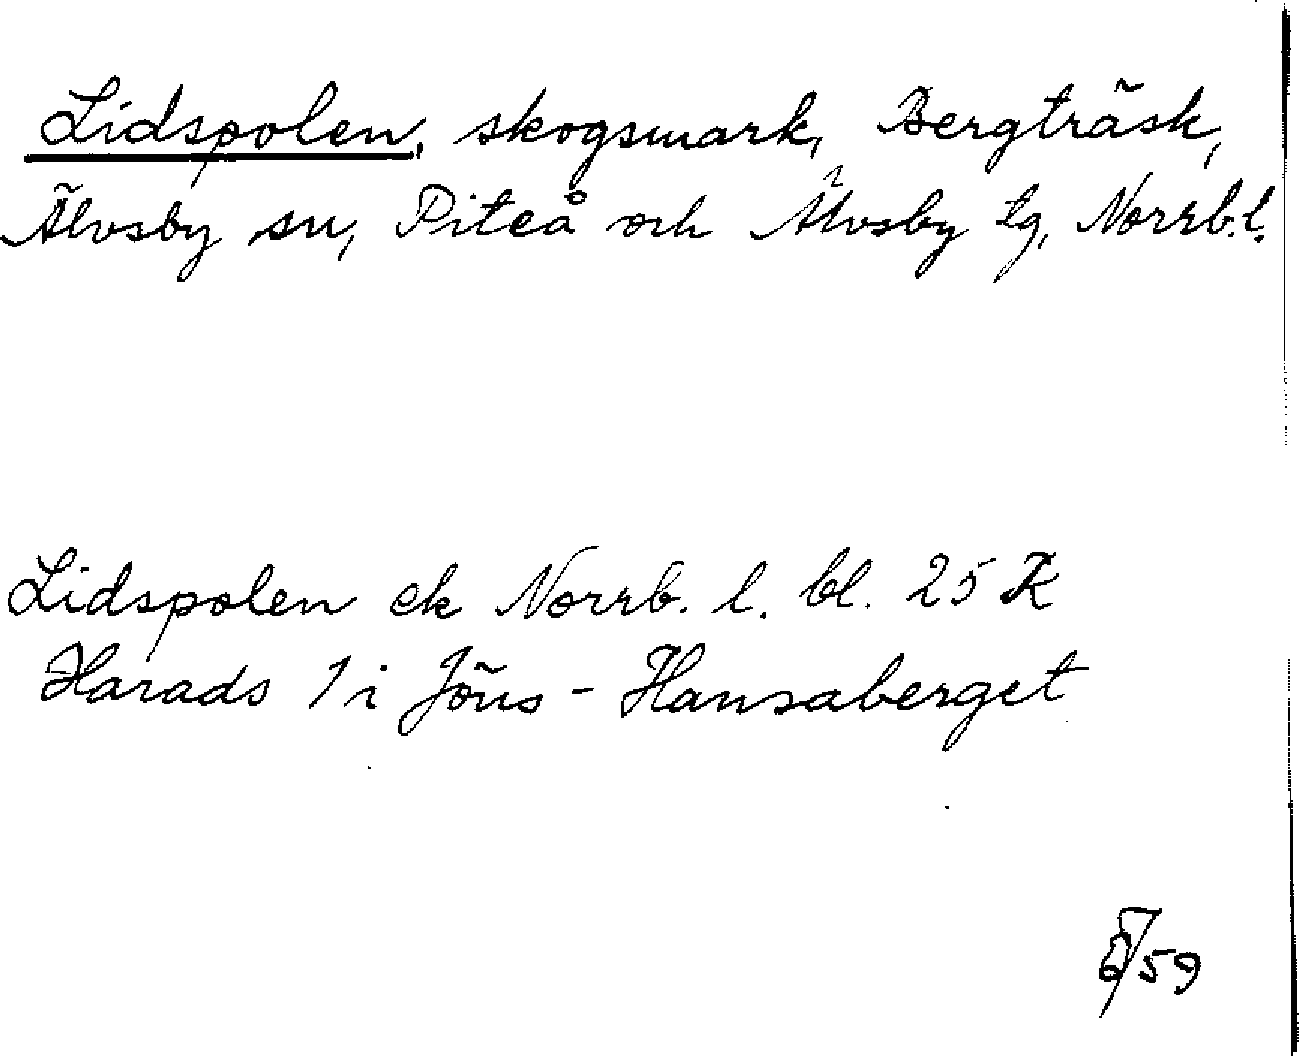 Lidspolen, skogsmark, Bergträsk,
Älvsby sn, Piteå och Älvsby tg, Norrb.l.
Lidspolen ek Norrb. l. bl. 25 K
Harads 1 i Jöns-Hansaberget
/59